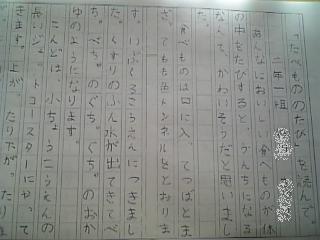 「たべもののたび」を読んで。
二年一組
あんなにおいしい食べものが体
の中をたびすると、うんちになる
なんて、かわいそうだと思いまし
た。
食べものは口に入ってつばとま
ざってもも色トンネルをとおりま
す。いぶくろこうえんにつきまし
た。くすりのふん水が出てきてべ
ちゃべちゃのぐちゃぐちゃのおか
ゆのようになります。
こんどは、小ちょうこうえんの
長いジェットコースターにやって
きます。上がったり下がったり